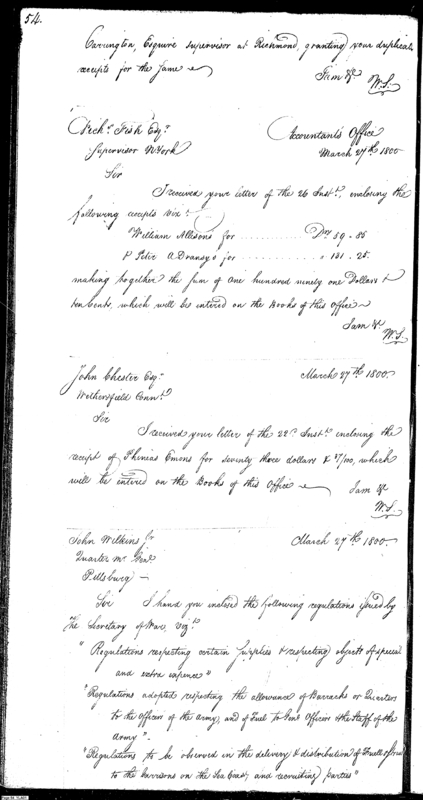 54.
Carrington, Esquire Supervisor at Richmond, granting your duplicate
receipts for the same
I am &c.
W.S.
Nich.s Fish Esq.r
Accountants Office
Supervisor N York
March 27th 1800
Sir
I received your letter of the 26 Inst.t, enclosing the
following receipts Viz.t
William Allisons for 59.85
P Peter A Dransy's for " 131.25
making together the sum of One hundred ninety one Dollars &
ten Cents, which will be entered on the Books of this Office
I am &c
W.S.
John Chester Esq.r
March 27th 1800
Wethersfield Conn.t
Sir
I received your letter of the 22d Inst.t enclosing the
receipt of Phineas Emens for seventy three dollars & 37/100, which
will be entered on the Books of this Office
I am &c
W.S.
John Wilkins Jr
March 27th 1800
Quarter Mr Gen.l
Pittsburg
Sir I hand you inclosed the following regulations issued by
The Secretary of War, Viz.t
"Regulations respecting certain supplies & respecting objects of special
and extra expence"
"Regulations adopted respecting the allowance of Barracks or Quarters
to the officers of the army, and of Fuel to Gen.l Officers & the Staff of the
Army"
"Regulations to be observed in the delivery & distribution of Fuel
to the Garrisons on the Sea Coast, and recruiting parties"